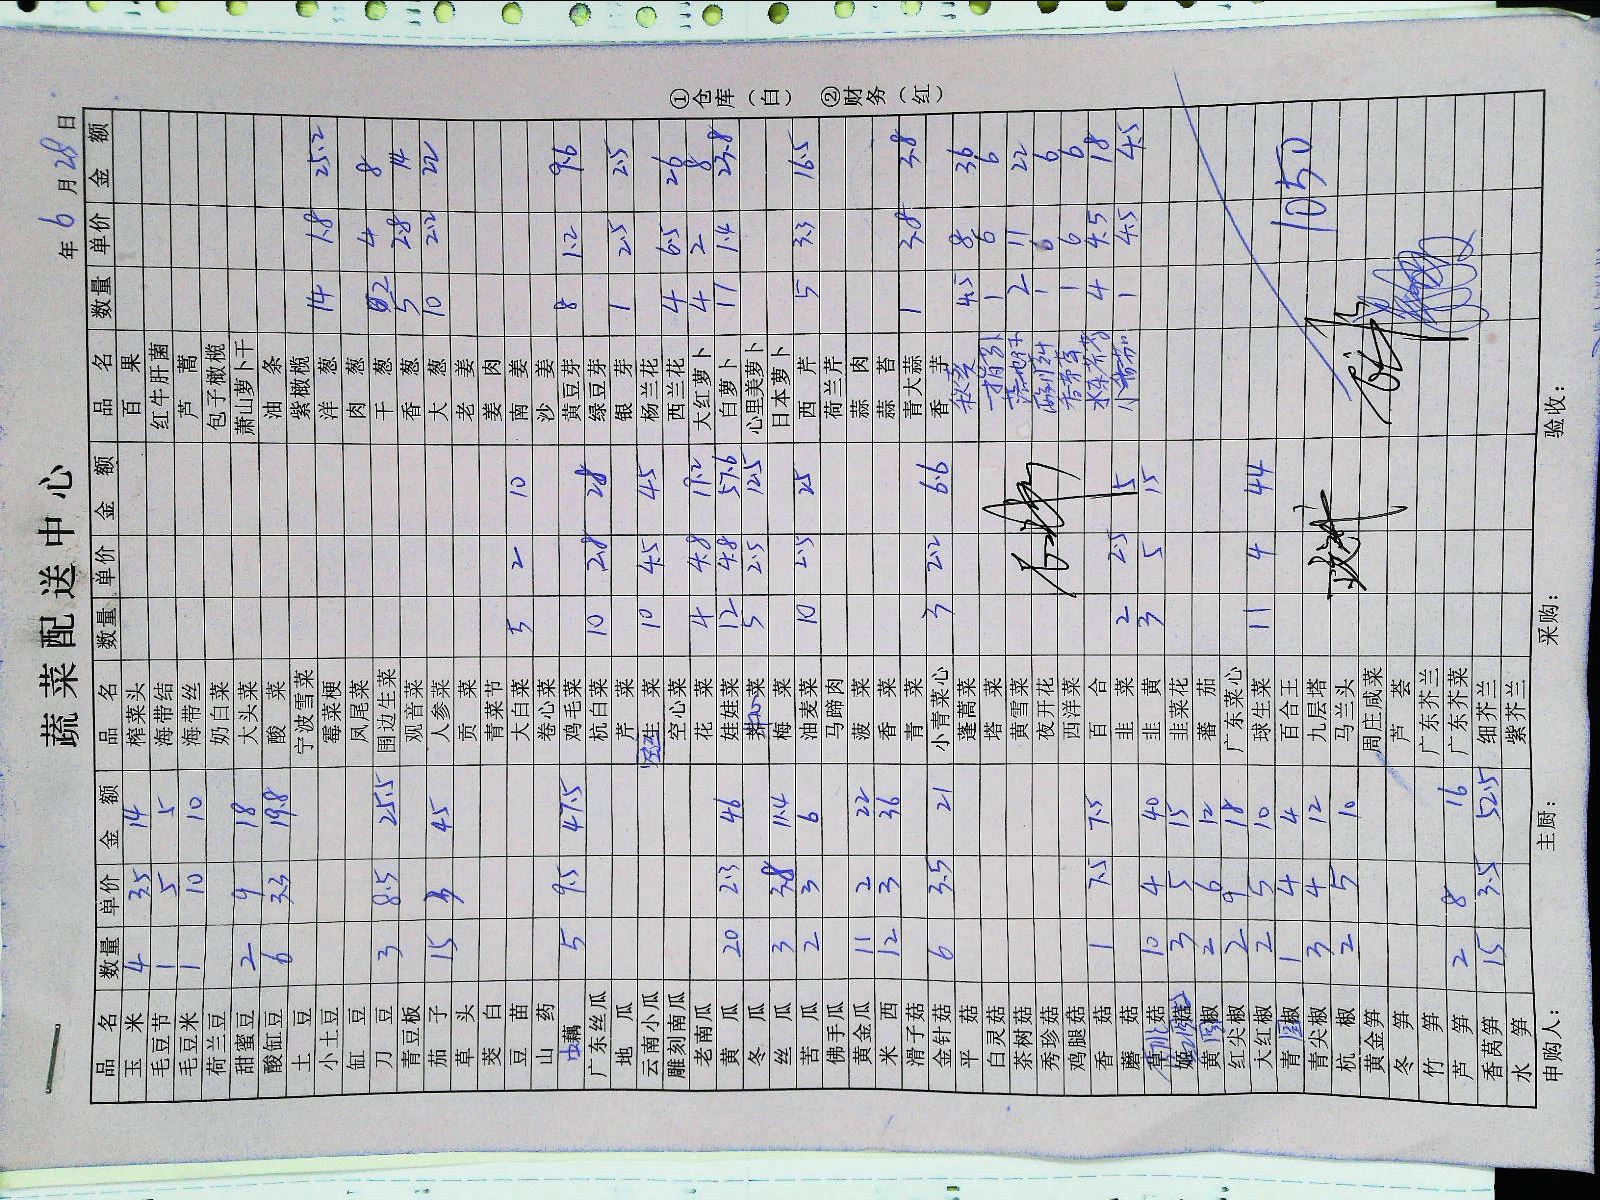 蔬菜配送中心
年 6 月 28 日
品名 数量 单价 金额 品名 数量 单价 金额 品名 数量 单价 金额
玉米 4 3.5 14 榨菜头 百果
毛豆节 1 5 5 海带结 红牛肝菌
毛豆米 1 10 10 海带丝 芦蒿
荷兰豆 奶白菜 包子橄榄
甜蜜豆 2 9 18 大头菜 萧山萝卜干
酸缸豆 6 3.3 19.8 酸菜 油条
土豆 宁波雪菜 紫橄榄
小土豆 霉菜梗 洋葱 14 1.8 25.2
缸豆 凤尾菜 肉葱
刀豆 3 8.5 25.5 围边生菜 干葱 2 4 8
青豆板 观音菜 香葱 5 2.8 14
茄子 15 3 45 人参菜 大葱 10 2.2 22
草头 贡菜 老姜
茭白 青菜节 姜肉
豆苗 大白菜 5 2 10 南姜
山药 卷心菜 沙姜
藕 5 9.5 47.5 鸡毛菜 黄豆芽 8 1.2 9.6
广东丝瓜 杭白菜 10 2.8 28 绿豆芽
地瓜 芹菜 银芽 1 2.5 2.5
云南小瓜 生菜 10 4.5 45 杨兰花
雕刻南瓜 空心菜 西兰花 4 6.5 26
老南瓜 花菜 4 4.8 19.2 大红萝卜 4 2 8
黄瓜 20 2.3 46 娃娃菜 12 4.8 57.6 白萝卜 17 1.4 23.8
冬瓜 菜 5 2.5 12.5 心里美萝卜
丝瓜 3 3.8 11.4 梅菜 日本萝卜
苦瓜 2 3 6 油麦菜 10 2.5 25 西芹 5 3.3 16.5
佛手瓜 马蹄肉 荷兰芹
黄金瓜 11 2 22 菠菜 蒜肉
米西 12 3 36 香菜 蒜苔
滑子菇 青菜 青大蒜 1 3.8 3.8
金针菇 6 3.5 21 小青菜心 3 2.2 6.6 香芋
平菇 蓬蒿菜 秋葵 4.5 8 36
白灵菇 塔菜 1 6 6
茶树菇 黄雪菜 2 11 22
秀珍菇 夜开花 1 6 6
鸡腿菇 西洋菜 香茅草 1 6 6
香菇 1 7.5 7.5 百合 水东芥菜 4 4.5 18
蘑菇 韭菜 2 2.5 5 1 4.5 4.5
菇 10 4 40 韭黄 3 5 15
3 5 15 韭菜花
黄圆椒 2 6 12 蕃茄
红尖椒 2 9 18 广东菜心
大红椒 2 5 10 球生菜 11 4 44
青圆椒 1 4 4 百合王
青尖椒 3 4 12 九层塔 1050
杭椒 2 5 10 马兰头
黄金笋 周庄咸菜
冬笋 芦荟
竹笋 广东芥兰
芦笋 2 8 16 广东芥菜
香莴笋 15 3.5 52.5 细芥兰
水笋 紫芥兰
申购人： 主厨： 采购： 验收：
①仓库（白） ②财务（红）